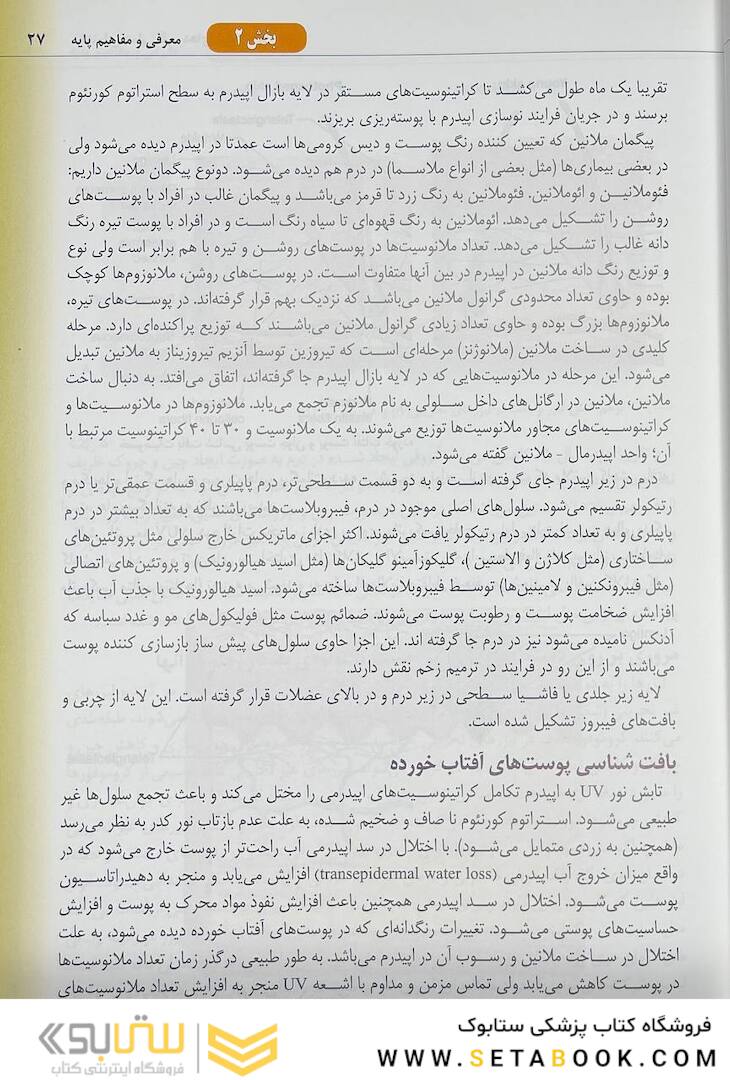 بخش ۲ معرفی و مفاهیم پایه ۲۷
تقریبا یک ماه طول می‌کشد تا کراتینوسیت‌های مستقر در لایه بازال اپیدرم به سطح استراتوم کورنئوم
برسند و در جریان فرایند نوسازی اپیدرم با پوسته‌ریزی بریزند.
پیگمان ملانین که تعیین کننده رنگ پوست و دیس کرومی‌ها است عمدتا در اپیدرم دیده می‌شود ولی
در بعضی بیماری‌ها (مثل بعضی از انواع ملاسما) در درم هم دیده می‌شود. دونوع پیگمان ملانین داریم:
فئوملانین و ائوملانین. فئوملانین به رنگ زرد تا قرمز می‌باشد و پیگمان غالب در افراد با پوست‌های
روشن را تشکیل می‌دهد. ائوملانین به رنگ قهوه‌ای تا سیاه رنگ است و در افراد با پوست تیره رنگ
دانه غالب را تشکیل می‌دهد. تعداد ملانوسیت‌ها در پوست‌های روشن و تیره با هم برابر است ولی نوع
و توزیع رنگ دانه ملانین در اپیدرم در بین آنها متفاوت است. در پوست‌های روشن، ملانوزوم‌ها کوچک
بوده و حاوی تعداد محدودی گرانول ملانین می‌باشد که نزدیک بهم قرار گرفته‌اند. در پوست‌های تیره،
ملانوزوم‌ها بزرگ بوده و حاوی تعداد زیادی گرانول ملانین می‌باشند که توزیع پراکنده‌ای دارد. مرحله
کلیدی در ساخت ملانین (ملانوژنز) مرحله‌ای است که تیروزین توسط آنزیم تیروزیناز به ملانین تبدیل
می‌شود. این مرحله در ملانوسیت‌هایی که در لایه بازال اپیدرم جا گرفته‌اند، اتفاق می‌افتد. به دنبال ساخت
ملانین، ملانین در ارگانل‌های داخل سلولی به نام ملانوزم تجمع می‌یابد. ملانوزوم‌ها در ملانوسیت‌ها و
کراتینوسیت‌های مجاور ملانوسیت‌ها توزیع می‌شوند. به یک ملانوسیت و ۳۰ تا ۴۰ کراتینوسیت مرتبط با
آن؛ واحد اپیدرمال - ملانین گفته می‌شود.
درم در زیر اپیدرم جای گرفته است و به دو قسمت سطحی‌تر، درم پاپیلری و قسمت عمقی‌تر یا درم
رتیکولر تقسیم می‌شود. سلول‌های اصلی موجود در درم، فیبروبلاست‌ها می‌باشند که به تعداد بیشتر در درم
پاپیلری و به تعداد کمتر در درم رتیکولر یافت می‌شوند. اکثر اجزای ماتریکس خارج سلولی مثل پروتئین‌های
ساختاری (مثل کلاژن و الاستین )، گلیکوزآمینو گلیکان‌ها (مثل اسید هیالورونیک) و پروتئین‌های اتصالی
(مثل فیبرونکنین و لامینین‌ها) توسط فیبروبلاست‌ها ساخته می‌شود. اسید هیالورونیک با جذب آب باعث
افزایش ضخامت پوست و رطوبت پوست می‌شوند. ضمائم پوست مثل فولیکول‌های مو و غدد سباسه که
آدنکس نامیده می‌شود نیز در درم جا گرفته اند. این اجزا حاوی سلول‌های پیش ساز بازسازی کننده پوست
می‌باشند و از این رو در فرایند در ترمیم زخم نقش دارند.
لایه زیر جلدی یا فاشیا سطحی در زیر درم و در بالای عضلات قرار گرفته است. این لایه از چربی و
بافت‌های فیبروز تشکیل شده است.
بافت شناسی پوست‌های آفتاب خورده
تابش نور UV به اپیدرم تکامل کراتینوسیت‌های اپیدرمی را مختل می‌کند و باعث تجمع سلول‌ها غیر
طبیعی می‌شود. استراتوم کورنئوم نا صاف و ضخیم شده، به علت عدم بازتاب نور کدر به نظر می‌رسد
(همچنین به زردی متمایل می‌شود). با اختلال در سد اپیدرمی آب راحت‌تر از پوست خارج می‌شود که در
واقع میزان خروج آب اپیدرمی (transepidermal water loss) افزایش می‌یابد و منجر به دهیدراتاسیون
پوست می‌شود. اختلال در سد اپیدرمی همچنین باعث افزایش نفوذ مواد محرک به پوست و افزایش
حساسیت‌های پوستی می‌شود. تغییرات رنگدانه‌ای که در پوست‌های آفتاب خورده دیده می‌شود، به علت
اختلال در ساخت ملانین و رسوب آن در اپیدرم می‌باشد. به طور طبیعی درگذر زمان تعداد ملانوسیت‌ها
در پوست کاهش می‌یابد ولی تماس مزمن و مداوم با اشعه UV منجر به افزایش تعداد ملانوسیت‌های
فروشگاه کتاب پزشکی ستابوک
WWW.SETABOOK.COM
ستابوک
فروشگاه اینترنتی کتاب